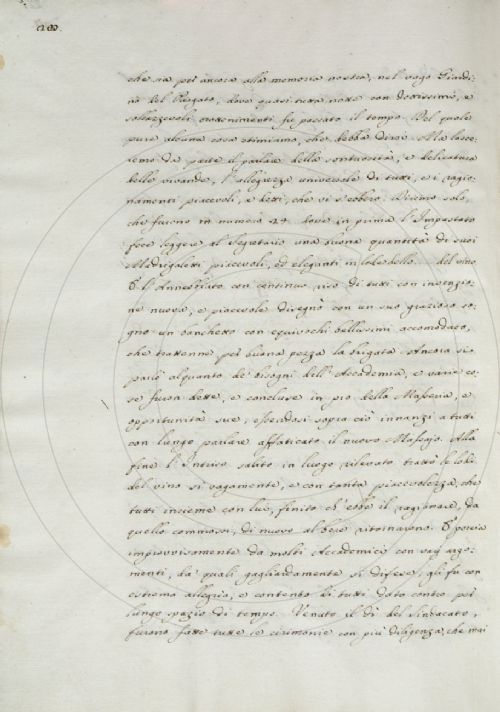 che sia per ancora alla memoria nostra, nel vago Giardi-
no del Purgato, dove quasi tutta notte con dottissimi, e
sollazzevoli trattenimenti fu passato il tempo. Del quale
pure alcuna cosa stimiamo, che debba dirsi. Ma lasce-
remo da parte il parlare della sontuosità, e delicatura
delle vivande, l'allegrezza universale di tutti, e i ragio-
namenti piacevoli, e detti, che vi s'ebbero. Diremo solo,
che furono in numero 24. dove in prima l'Impastato
fece leggere al Segretario una buona quantità di suoi
Madrigaletti piacevoli, ed eleganti in lode dello del vino
E l'Annebbiato con continuo riso di tutti con invenzio-
ne nuova, e piacevole disegnò con un suo grazioso so-
gno un banchetto con equivochi bellissimi accomodato,
che trattenne per buona pezza la brigata. Ancora si
parlò alquanto de' bisogni dell'Accademia, e varie co-
se furon dette, e concluse in pro della Masseria, e
opportunità sue; essendosi sopra ciò innanzi a tutti
con lungo parlare affaticato il nuovo Massajo. Alla
fine l'Intriso salito in luogo rilevato trattò le lodi
del vino sì vagamente, e con tanta piacevolezza, che
tutti insieme con lui, finito ch'ebbe il ragionare, da
quello commossi, di nuovo al bere ritornarono. E poscia
improvvisamente da molti Accademici con varj argo-
menti, da quali gagliardamente si difese, gli fu con
estrema allegria, e contento di tutti dato contro per
lungo spazio di tempo. Venuto il dì del Sindacato,
furono fatte tutte le cirimonie con più diligenza, che mai